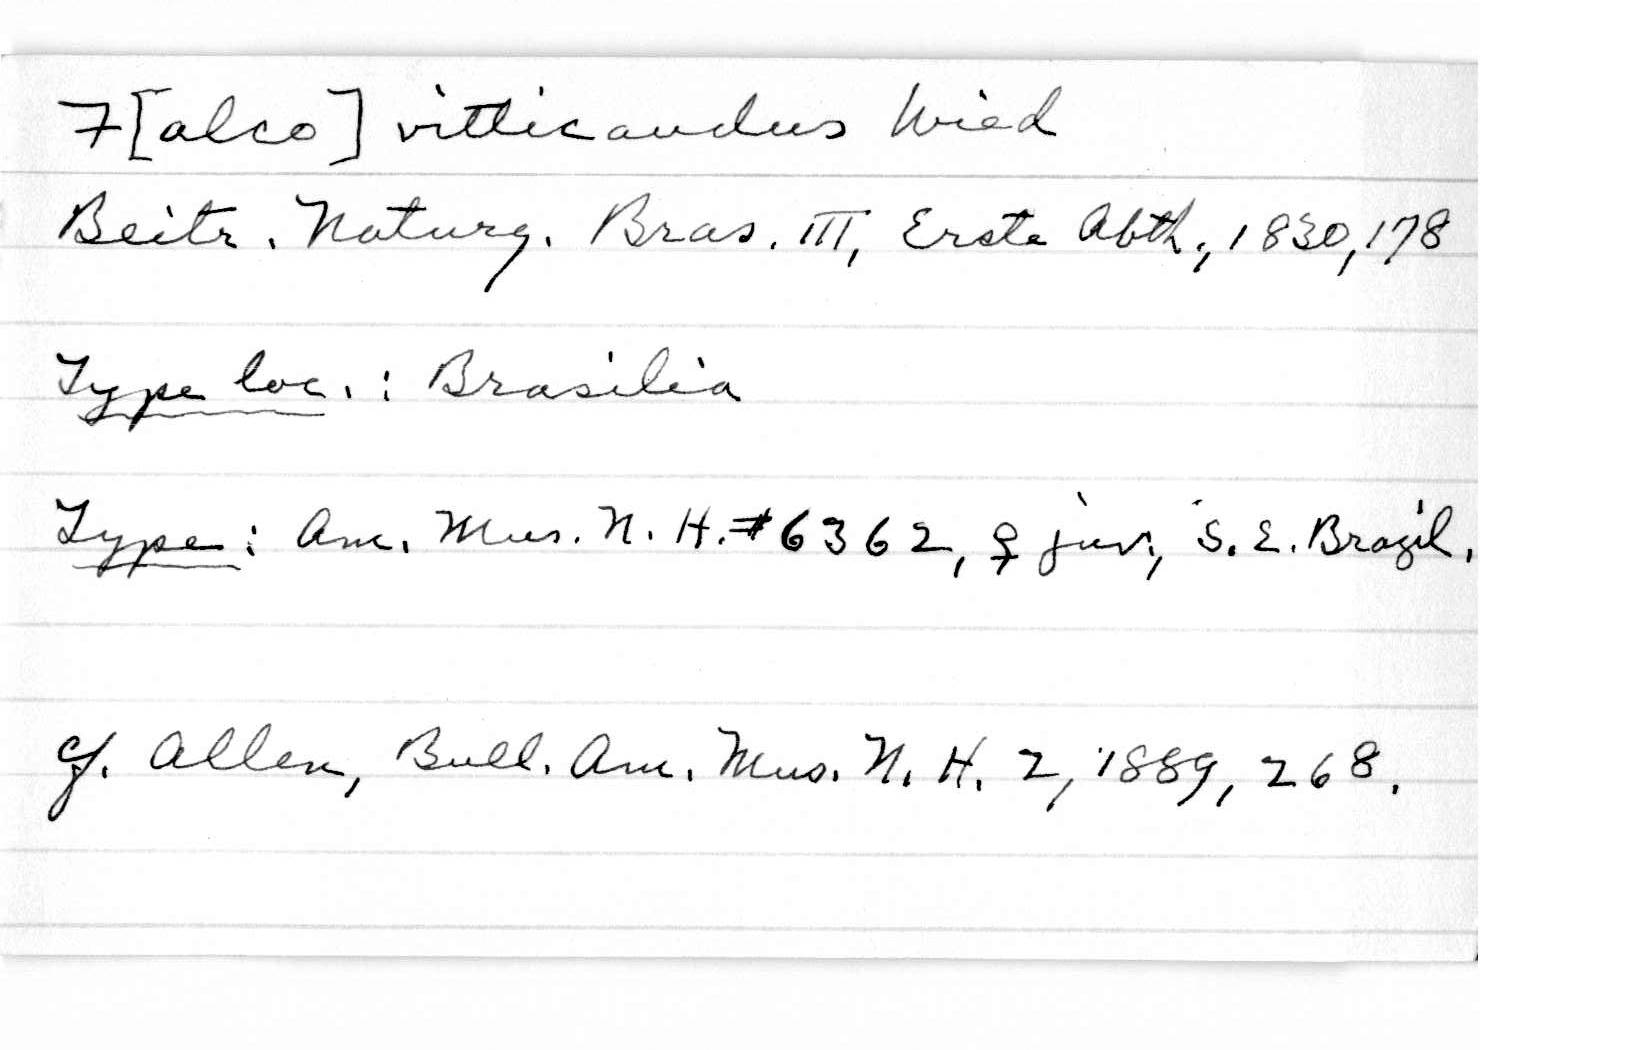 F[alco] vitticaudus Wied
Beitr. Naturg. Bras. III, Erste Abth., 1830, 178
Type loc.: Brasilia
Type: Am. Mus. N. H. #6362, ♀ juv., S. E. Brazil.
cf. Allen, Bull. Am. Mus. N. H. 2, 1889, 268.